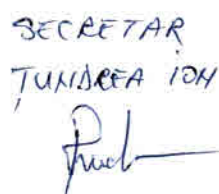 SECRETAR
ȚUNDREA ION